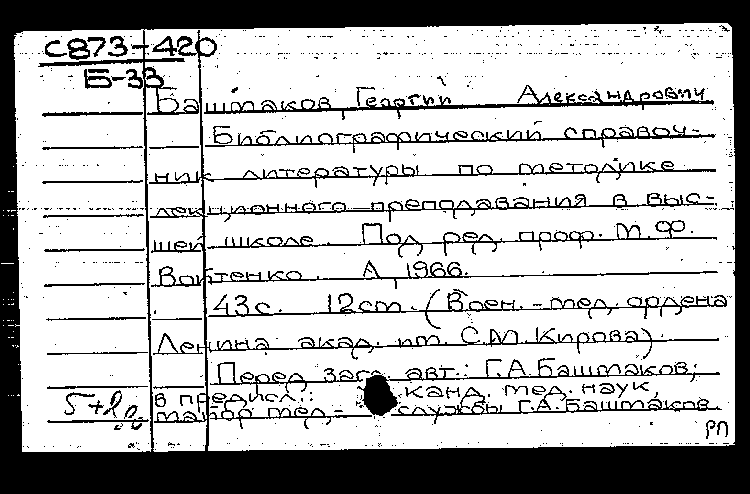 С873-420
Б-33
Баштаков, Георгий Александрович
Библиографический справоч-
ник литературы по методике
лекционного преподавания в выс-
шей школе. Под ред. проф. М.Ф.
Войтенко. Л., 1966.
43с. 12см. (Воен.-мед. ордена
Ленина акад. им. С.М.Кирова).
Перед загл. авт.: Г.А.Баштаков;
в предисл.: канд. мед. наук,
майор мед. службы Г.А.Баштаков.
РП